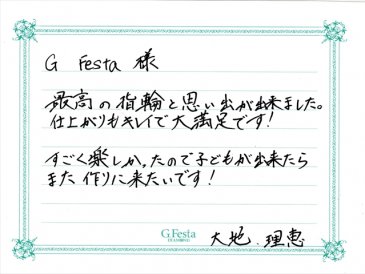 G Festa 様
最高の指輪と思い出が出来ました。
仕上がりもキレイで大満足です!
すごく楽しかったので子どもが出来たら
また 作りに来たいです!
G.Festa
大地・理恵